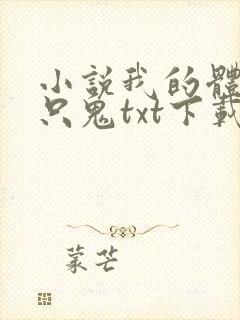 小説我的體
只鬼txt下載
蒙芒